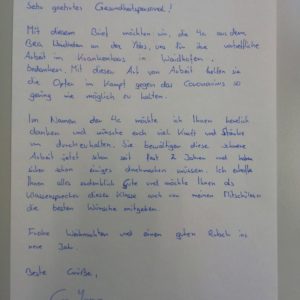 Sehr geehrtes Gesundheitspersonal!
Mit diesem Brief möchten wir, die 4c aus dem
BRG Waidhofen an der Ybbs, uns für ihre vortreffliche
Arbeit im Krankenhaus in Waidhofen
bedanken. Mit dieser Art von Arbeit helfen sie
die Opfer im Kampf gegen das Coronavirus so
gering wie möglich zu halten.
Im Namen der 4c möchte ich Ihnen herzlich
danken und wünsche euch viel Kraft und Stärke
um durchzuhalten. Sie bewältigen diese schwere
Arbeit jetzt schon seit fast 2 Jahren und haben
sicher schon einiges durchmachen müssen. Ich
Ihnen alles Gute und möchte Ihnen als
Klassensprecher dieser Klasse auch von meinen Mitschülern
die besten Wünsche mitgeben.
Frohe Weihnachten und einen guten Rutsch ins
neue Jahr
Beste Grüße,